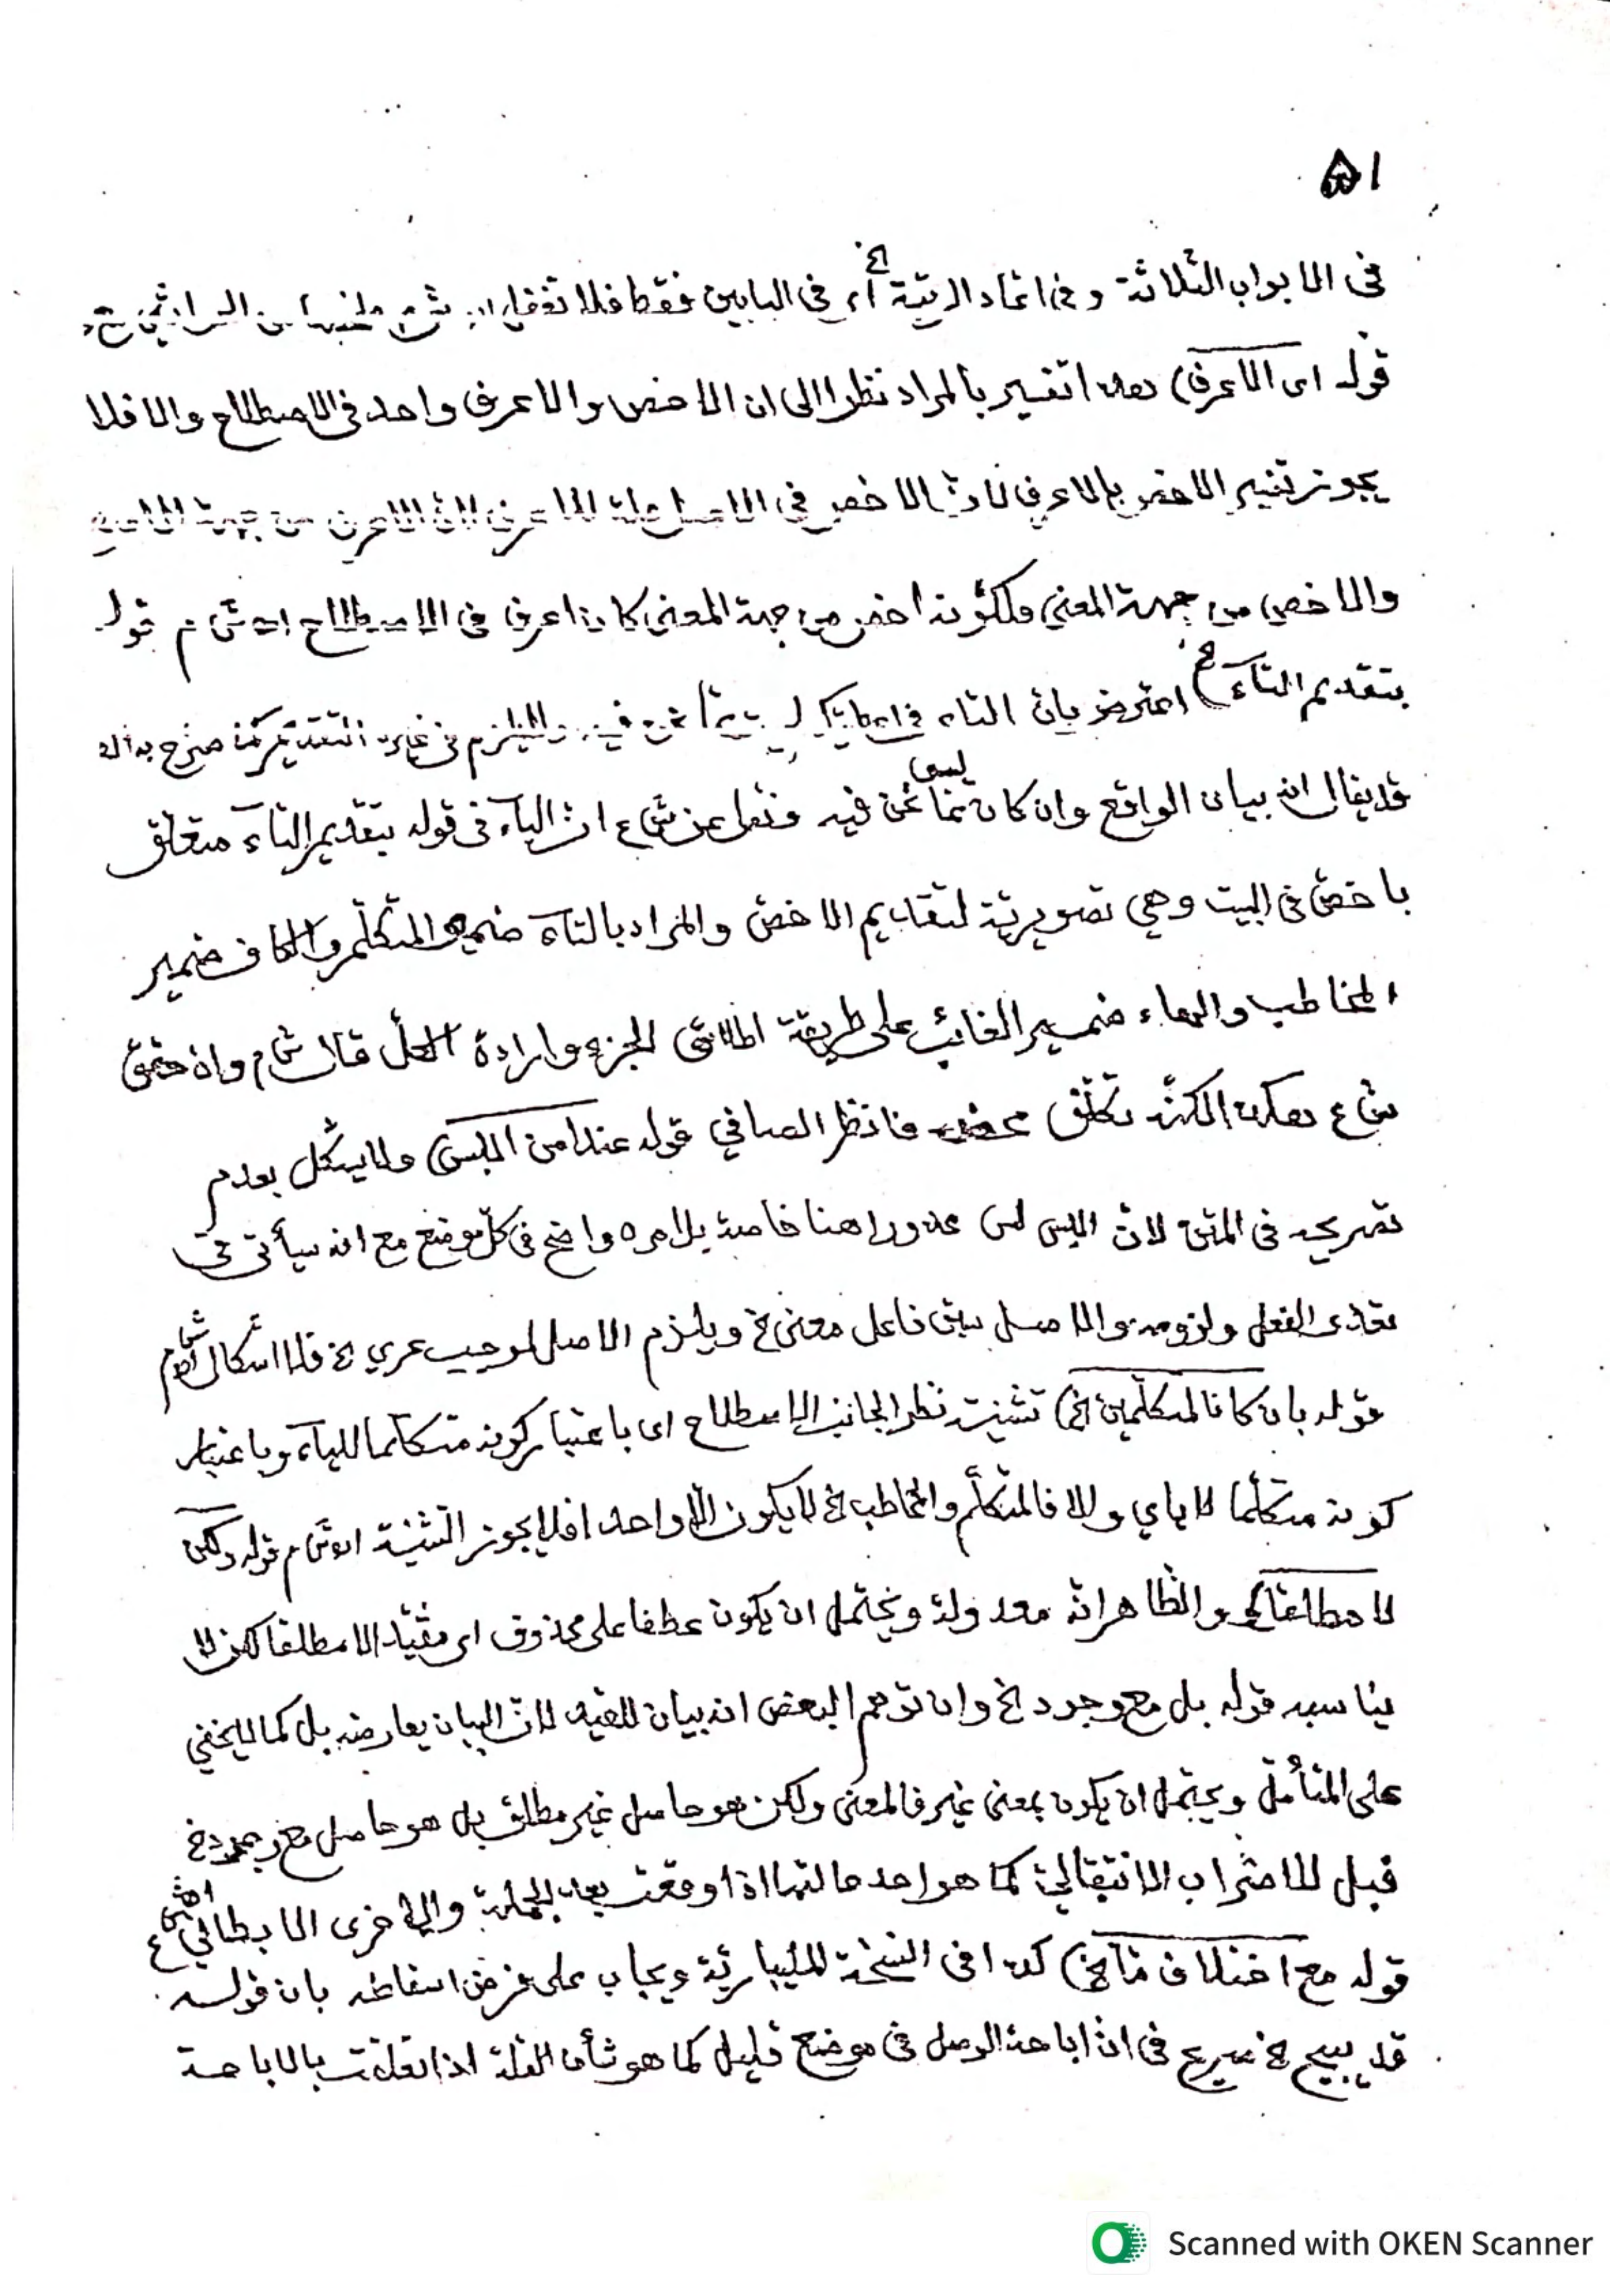 ٥١
في الابواب الثلاثة وفي اتحاد الرتبة الخ أي في البابين فقط فلا تغفل
قوله اى الاعرف) هذا تفسير بالمراد نظرا الى ان الاخص والاعرف واحد في الاصطلاح والا فلا
يجوز تفسير الاخص بالاعرف لانّ الاخص في الاصل علة الاعرف لانّ الاعرف من جهة
والاخص من جهة المعنى فلكونه اخص من جهة المعنى كان اعرف في الاصطلاح اه ش م قوله
بتقديم التآء الخ) اعترض بان التاء في اعطيتكه ليست مما نحن فيه
قد يقال انه بيان الواقع وان كان ليس مما نحن فيه ونقل عن ش ع انّ البآء في قوله بتقديم التآء متعلق
باخصّ في البيت وهي تصويريّة لتقديم الاخصّ والمراد بالتآء ضمير المتكلّم والكاف ضمير
المخاطب والهاء ضمير الغائب على طريقة اطلاق الجزء وارادة الكلّ قال ش م واذ حقق
ش ع هكذا لكنّه تكلّف محض فانظر الصافي قوله عند امن اللبس) ولا يشكل بعدم
تصريحه في المتن لانّ اللبس ليس محذورا هنا خاصة بل امره واضح في كلّ موضع مع انه سيأتى في
تعدّى الفعل ولزومه والاصل سبق فاعل معنى الخ ويلزم الاصل لموجب عرى الخ فلا اشكال اه ش م
قوله بان كانا لمتكلّمين الخ) تثنيته نظرا لجانب الاصطلاح اى باعتبار كونه متكلّما لليآء وباعتبار
كونه متكلّما لاياي والا فالمتكلّم والمخاطب الخ لا يكون الّا واحدا فلا يجوز التثنية اه ش م قوله ولكن
لا مطلقا الخ) والظاهر انّه معدولة ويحتمل ان يكون عطفا على محذوف اى مقيّدا لا مطلقا لكن لا
يناسبه قوله بل مع وجود الخ وان توهم البعض انه بيان للقيد لانّ البيان يعارضه بل كما لا يخفي
على المتأمّل ويحتمل ان يكون بمعنى غير فالمعنى ولكن هو حاصل غير مطلق بل هو حاصل مع وجود الخ
فبل للاضراب الانتقاليّ كما هو احد حالتها اذا وقعت بعد الجملة والاخرى الابطالي اه ش ع
قوله مع اختلاف مّا الخ) كذا في النسخة المليباريّة ويجاب على فرض اسقاطه بان قوله
قد يبيح الخ صريح في انّ اباحة الوصل في موضع قليل كما هو شأن القلة اذا تعلقت بالاباحة
Scanned with OKEN Scanner